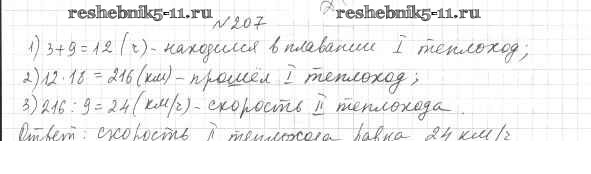 reshebnik5-11.ru
№207
1) 3+9=12 (ч) - находился в плавании I теплоход;
2) 12·18=216 (км) - прошёл I теплоход;
3) 216:9=24 (км/ч) - скорость II теплохода.
Ответ: скорость II теплохода равна 24 км/ч
reshebnik5-11.ru